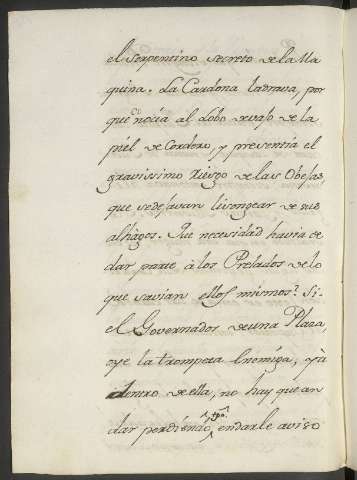 el serpentino secreto de la Ma
quina. La Cardona ladrava, por
que conocia al Lobo devajo de la
piel de Cordero, y preventia el
gravissimo riesgo de las Obejas
que se dejavan lisongear de sus
alhagos. Que necesidad havia de
dar parte à los Prelados de lo
que savian ellos mismos? Si
el Governador de una Plaza
oye la trompeta Enemiga, yà
dentro de ella, no hay que an
dar perdiendo tpo. en darle aviso